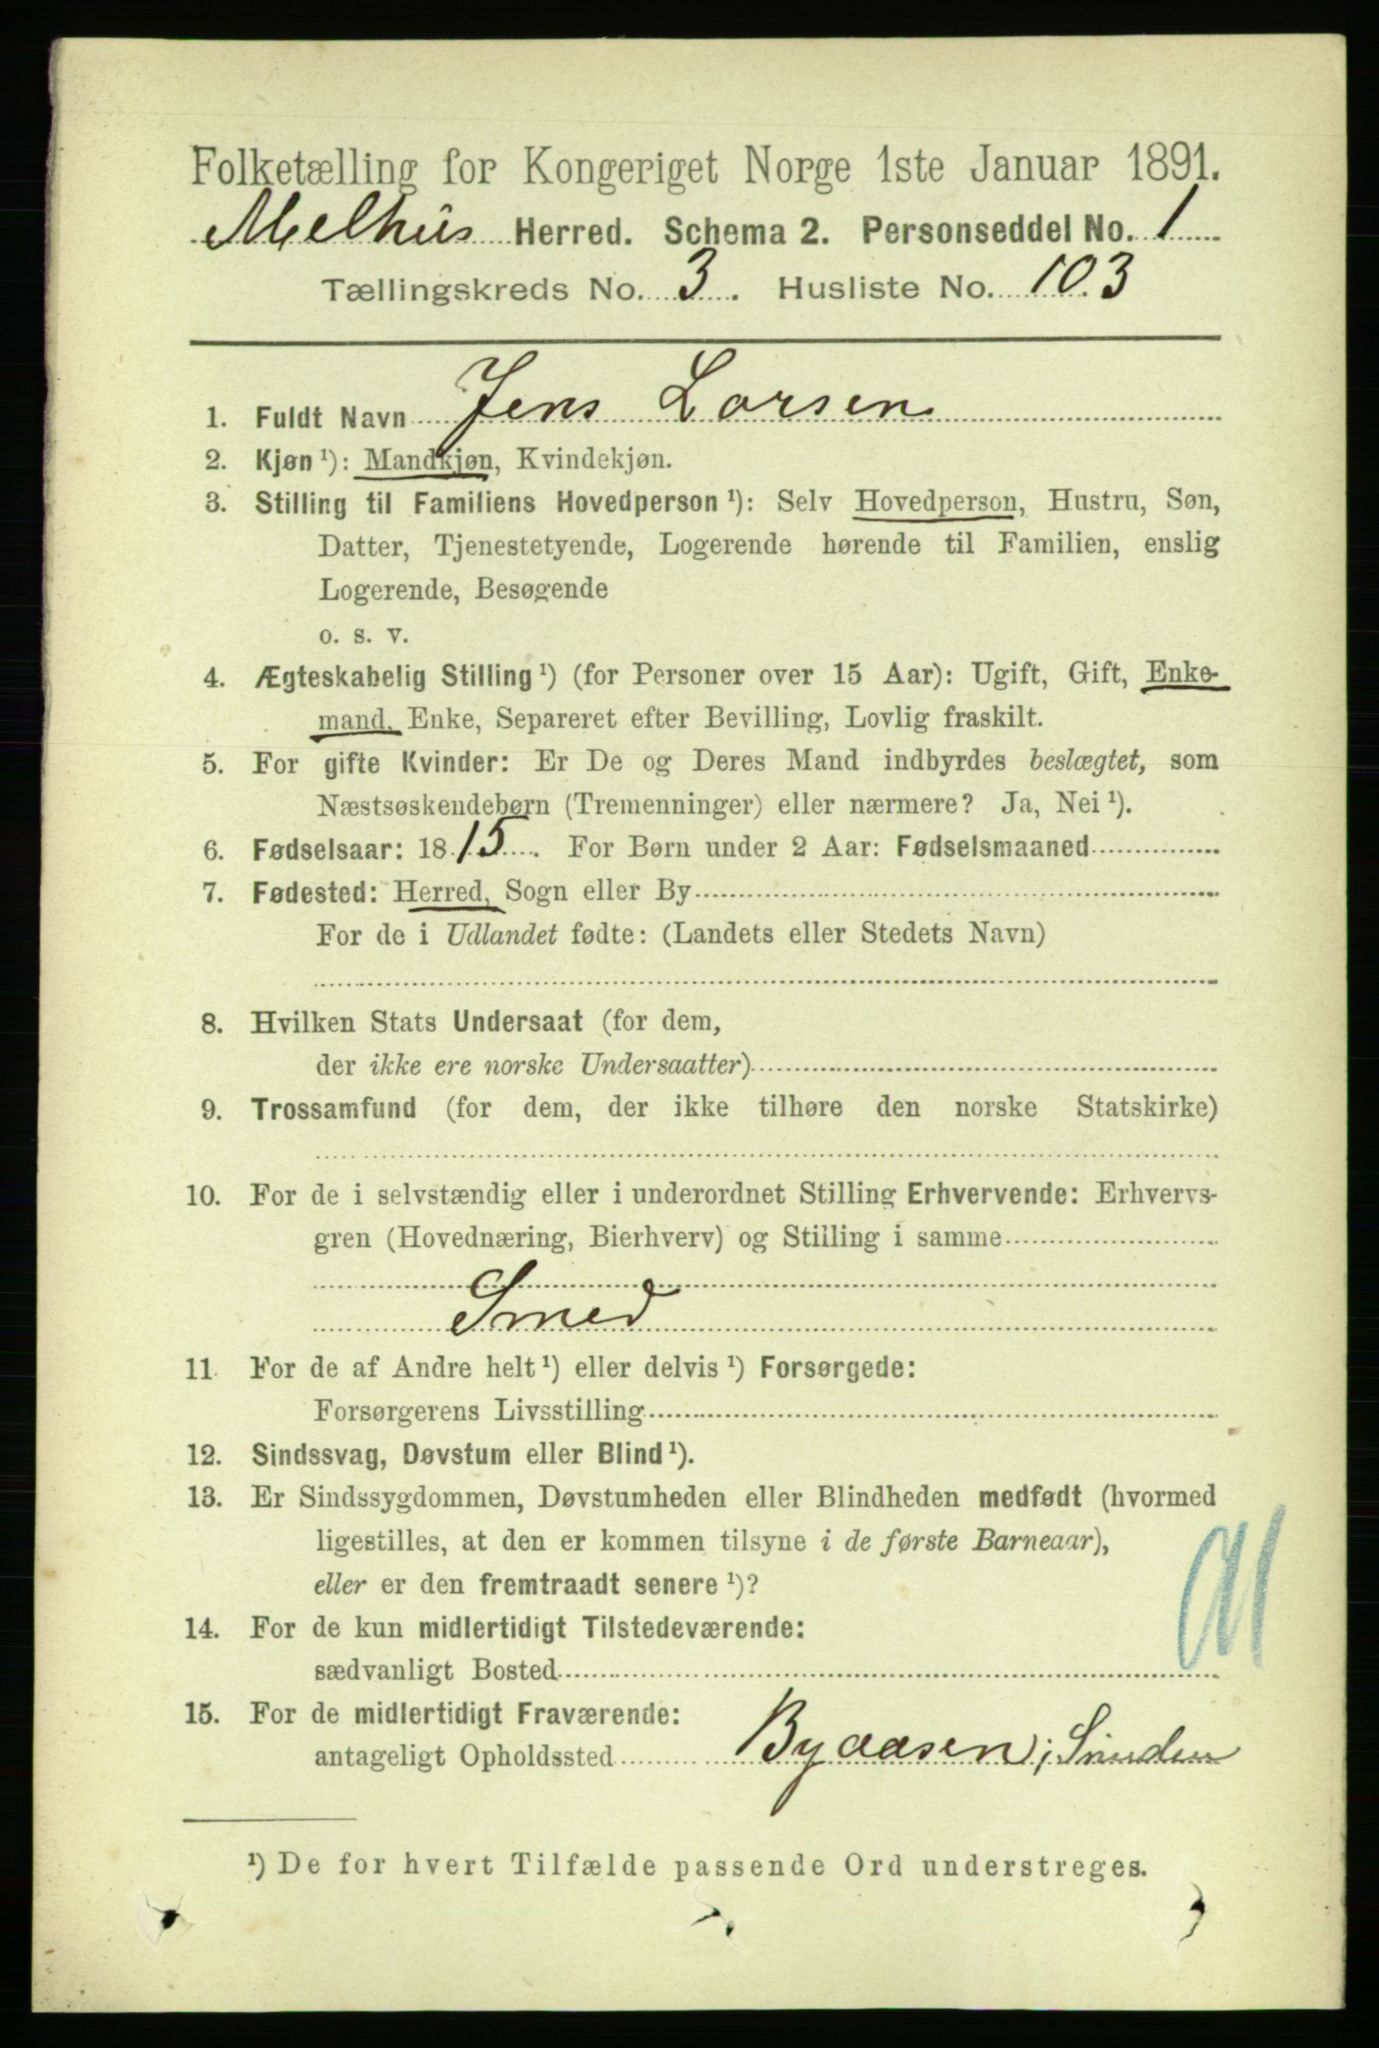 Folketælling for Kongeriget Norge 1ste Januar 1891.
Melhus Herred. Schema 2. Personseddel No. 1
Tællingskreds No. 3. Husliste No. 103
1. Fuldt Navn Jens Larsen
2. Kjøn ¹): Mandkjøn, Kvindekjøn.
3. Stilling til Familiens Hovedperson ¹): Selv Hovedperson, Hustru, Søn,
Datter, Tjenestetyende, Logerende hørende til Familien, enslig
Logerende, Besøgende
o. s. v.
4. Ægteskabelig Stilling ¹) (for Personer over 15 Aar): Ugift, Gift, Enke-
mand, Enke, Separeret efter Bevilling, Lovlig fraskilt.
5. For gifte Kvinder: Er De og Deres Mand indbyrdes beslægtet, som
Næstsøskendebørn (Tremenninger) eller nærmere? Ja, Nei ¹).
6. Fødselsaar: 1815. For Børn under 2 Aar: Fødselsmaaned
7. Fødested: Herred, Sogn eller By
For de i Udlandet fødte: (Landets eller Stedets Navn)
8. Hvilken Stats Undersaat (for dem,
der ikke ere norske Undersaatter)
9. Trossamfund (for dem, der ikke tilhøre den norske Statskirke)
10. For de i selvstændig eller i underordnet Stilling Erhvervende: Erhvervs-
gren (Hovednæring, Bierhverv) og Stilling i samme
Smed
11 For de af Andre helt ¹) eller delvis ¹) Forsørgede:
Forsørgerens Livsstilling
12. Sindssvag, Døvstum eller Blind ¹).
13. Er Sindssygdommen, Døvstumheden eller Blindheden medfødt (hvormed
ligestilles, at den er kommen tilsyne i de første Barneaar),
eller er den fremtraadt senere ¹)?
14. For de kun midlertidigt Tilstedeværende:
sædvanligt Bosted
15. For de midlertidigt Fraværende:
antageligt Opholdssted Byaasen; Strinden
¹) De for hvert Tilfælde passende Ord understreges.